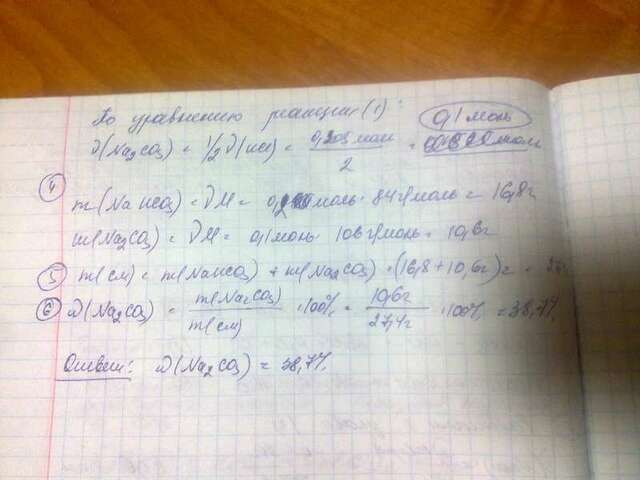 По уравнению реакции (1):
ν(Na₂CO₃) = 1/2 ν(HCl) = 0,2 моль / 2 = 0,1 моль
④ m(NaHCO₃) = νM = 0,2 моль · 84 г/моль = 16,8 г
m(Na₂CO₃) = νM = 0,1 моль · 106 г/моль = 10,6 г
⑤ m(см) = m(NaHCO₃) + m(Na₂CO₃) = (16,8 + 10,6г) г =
⑥ ω(Na₂CO₃) = m(Na₂CO₃) / m(см) · 100% = 10,6г / 27,4г · 100% = 38,7%
Ответ: ω(Na₂CO₃) = 38,7%